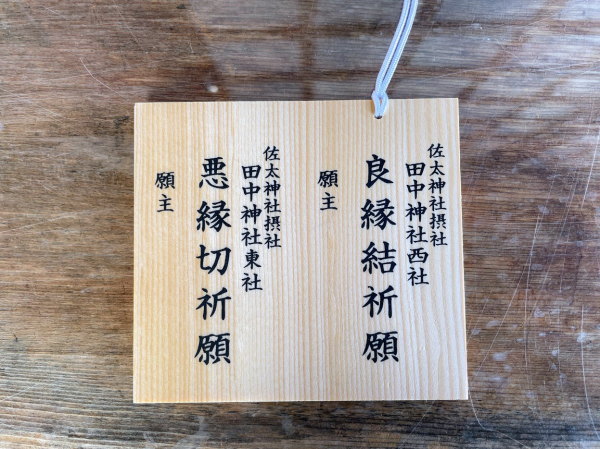 佐太神社摂社
田中神社西社
良縁結祈願
願主
佐太神社摂社
田中神社東社
悪縁切祈願
願主